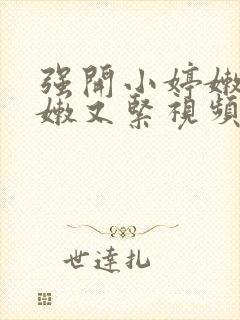 强開小婷嫩
嫩又緊視頻
世達扎